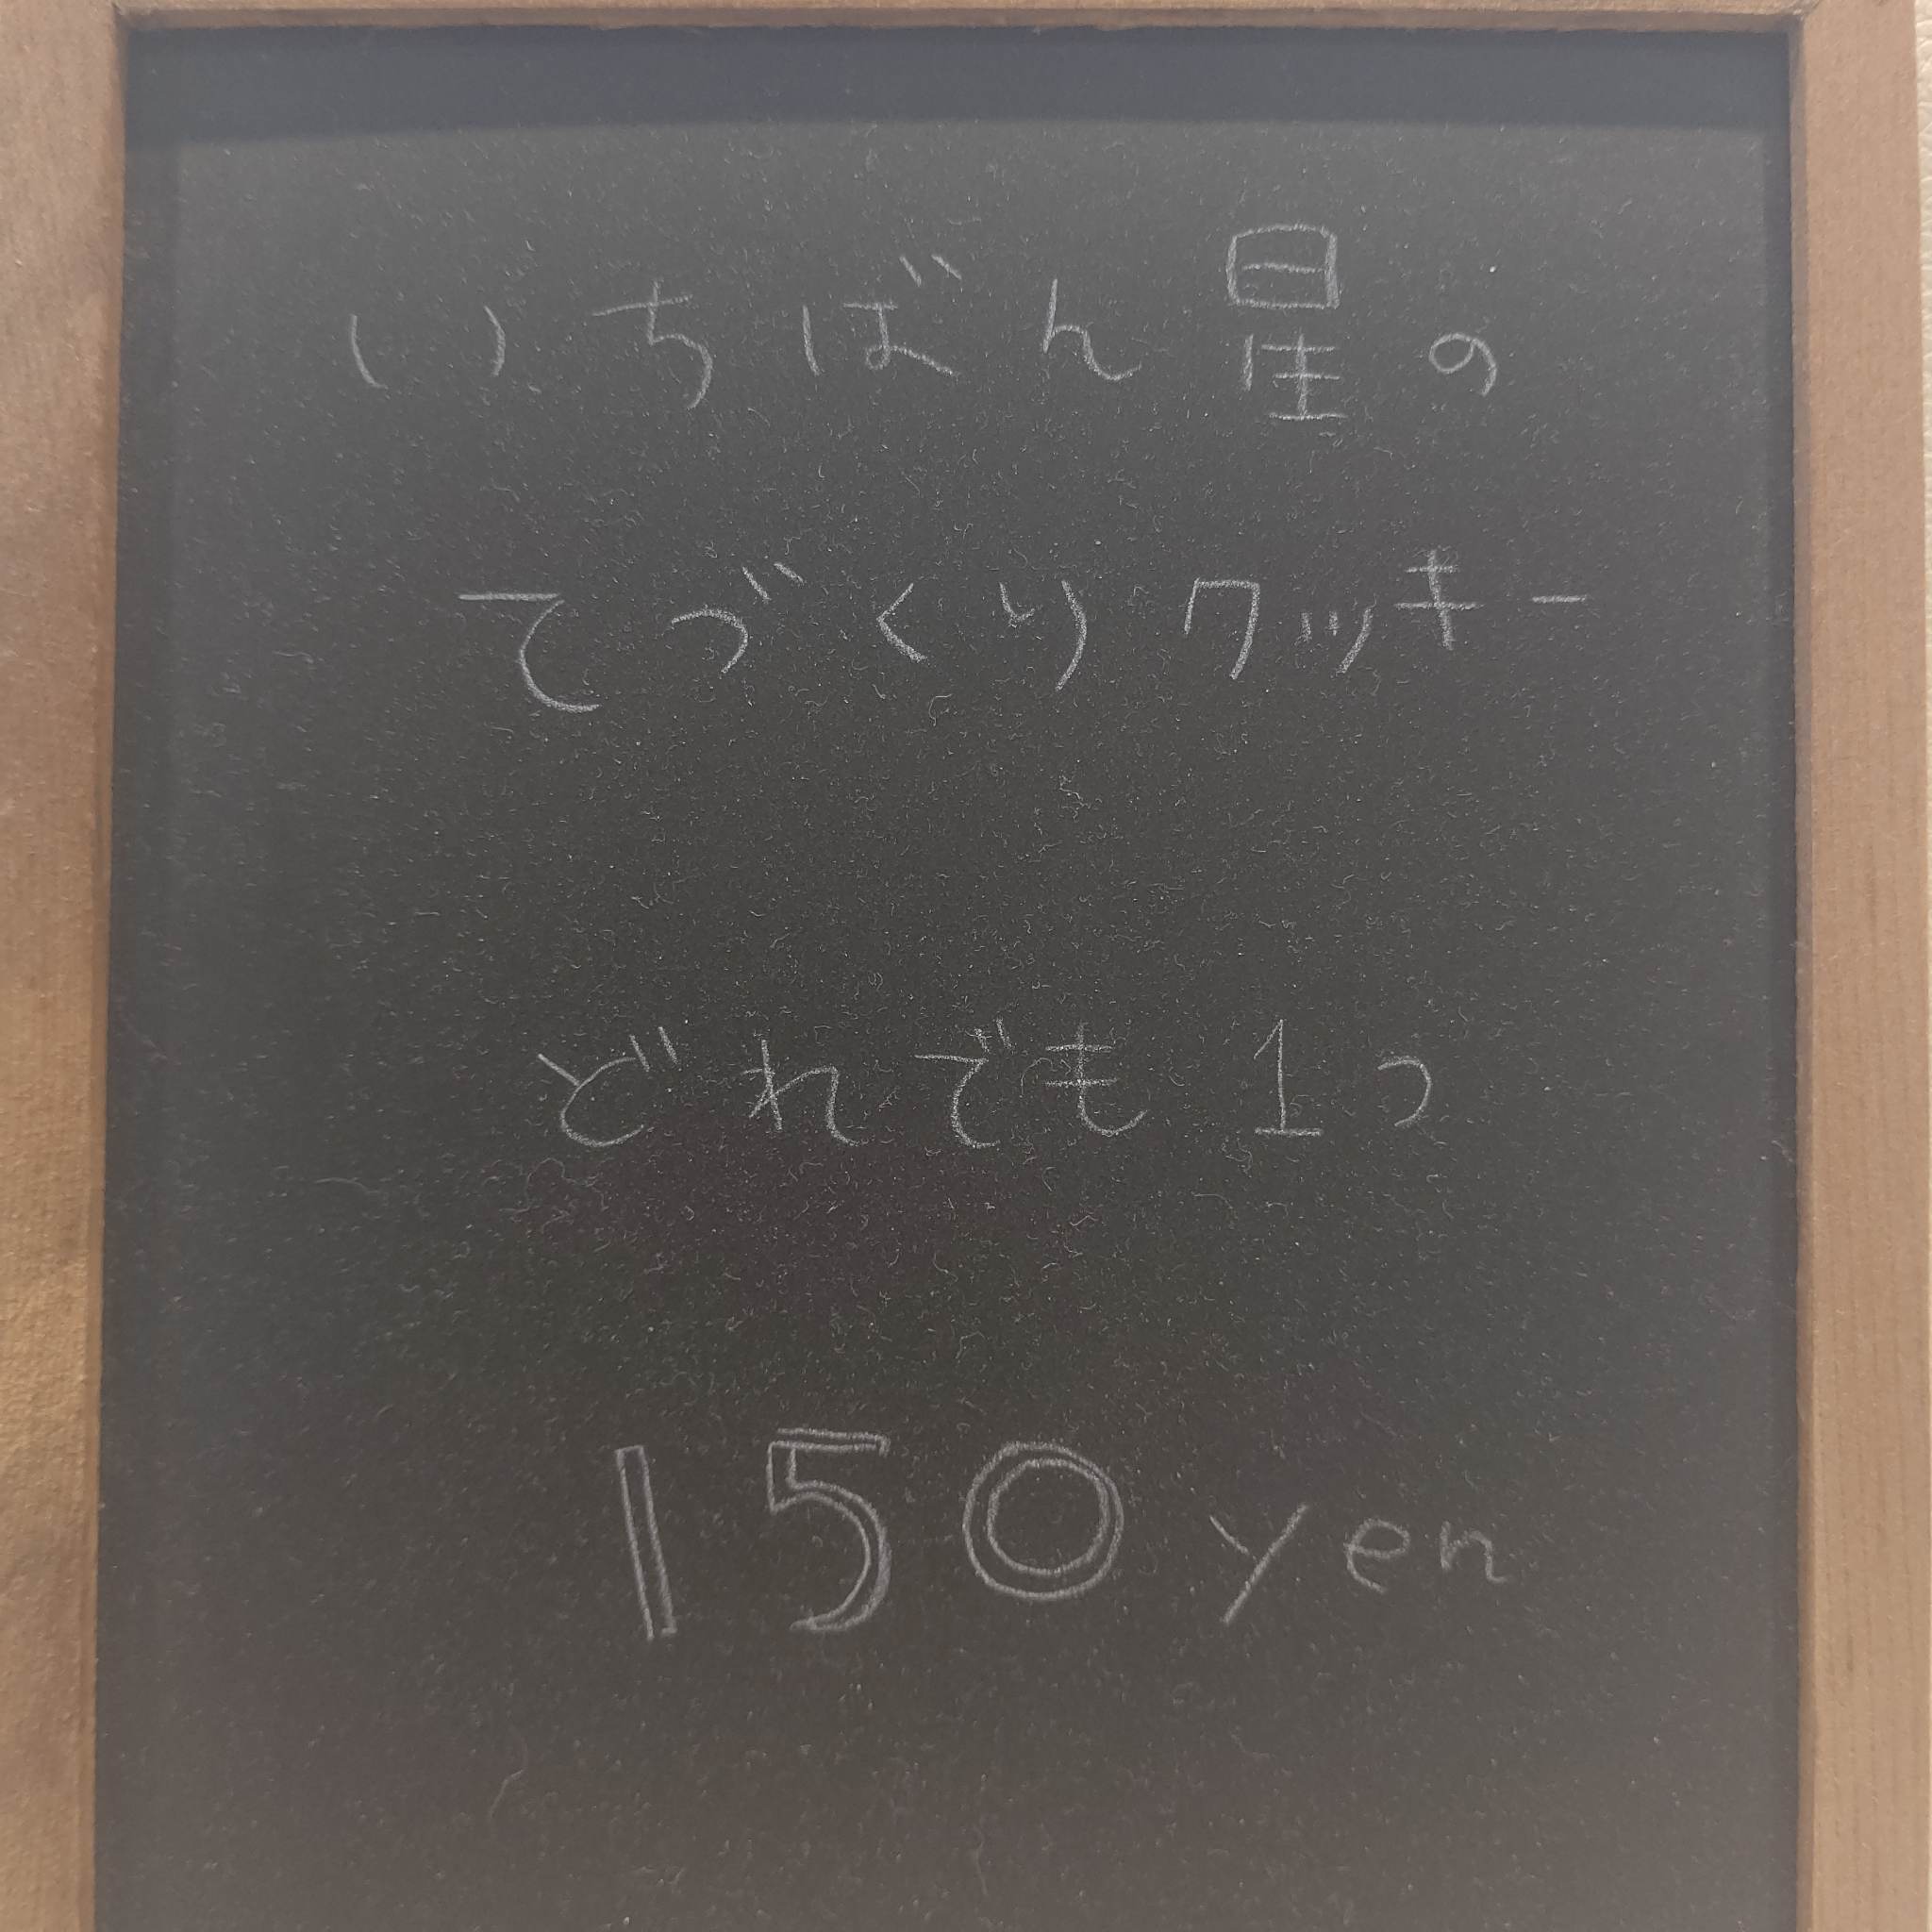 いちばん星の
てづくりクッキー
どれでも 1つ
150 yen